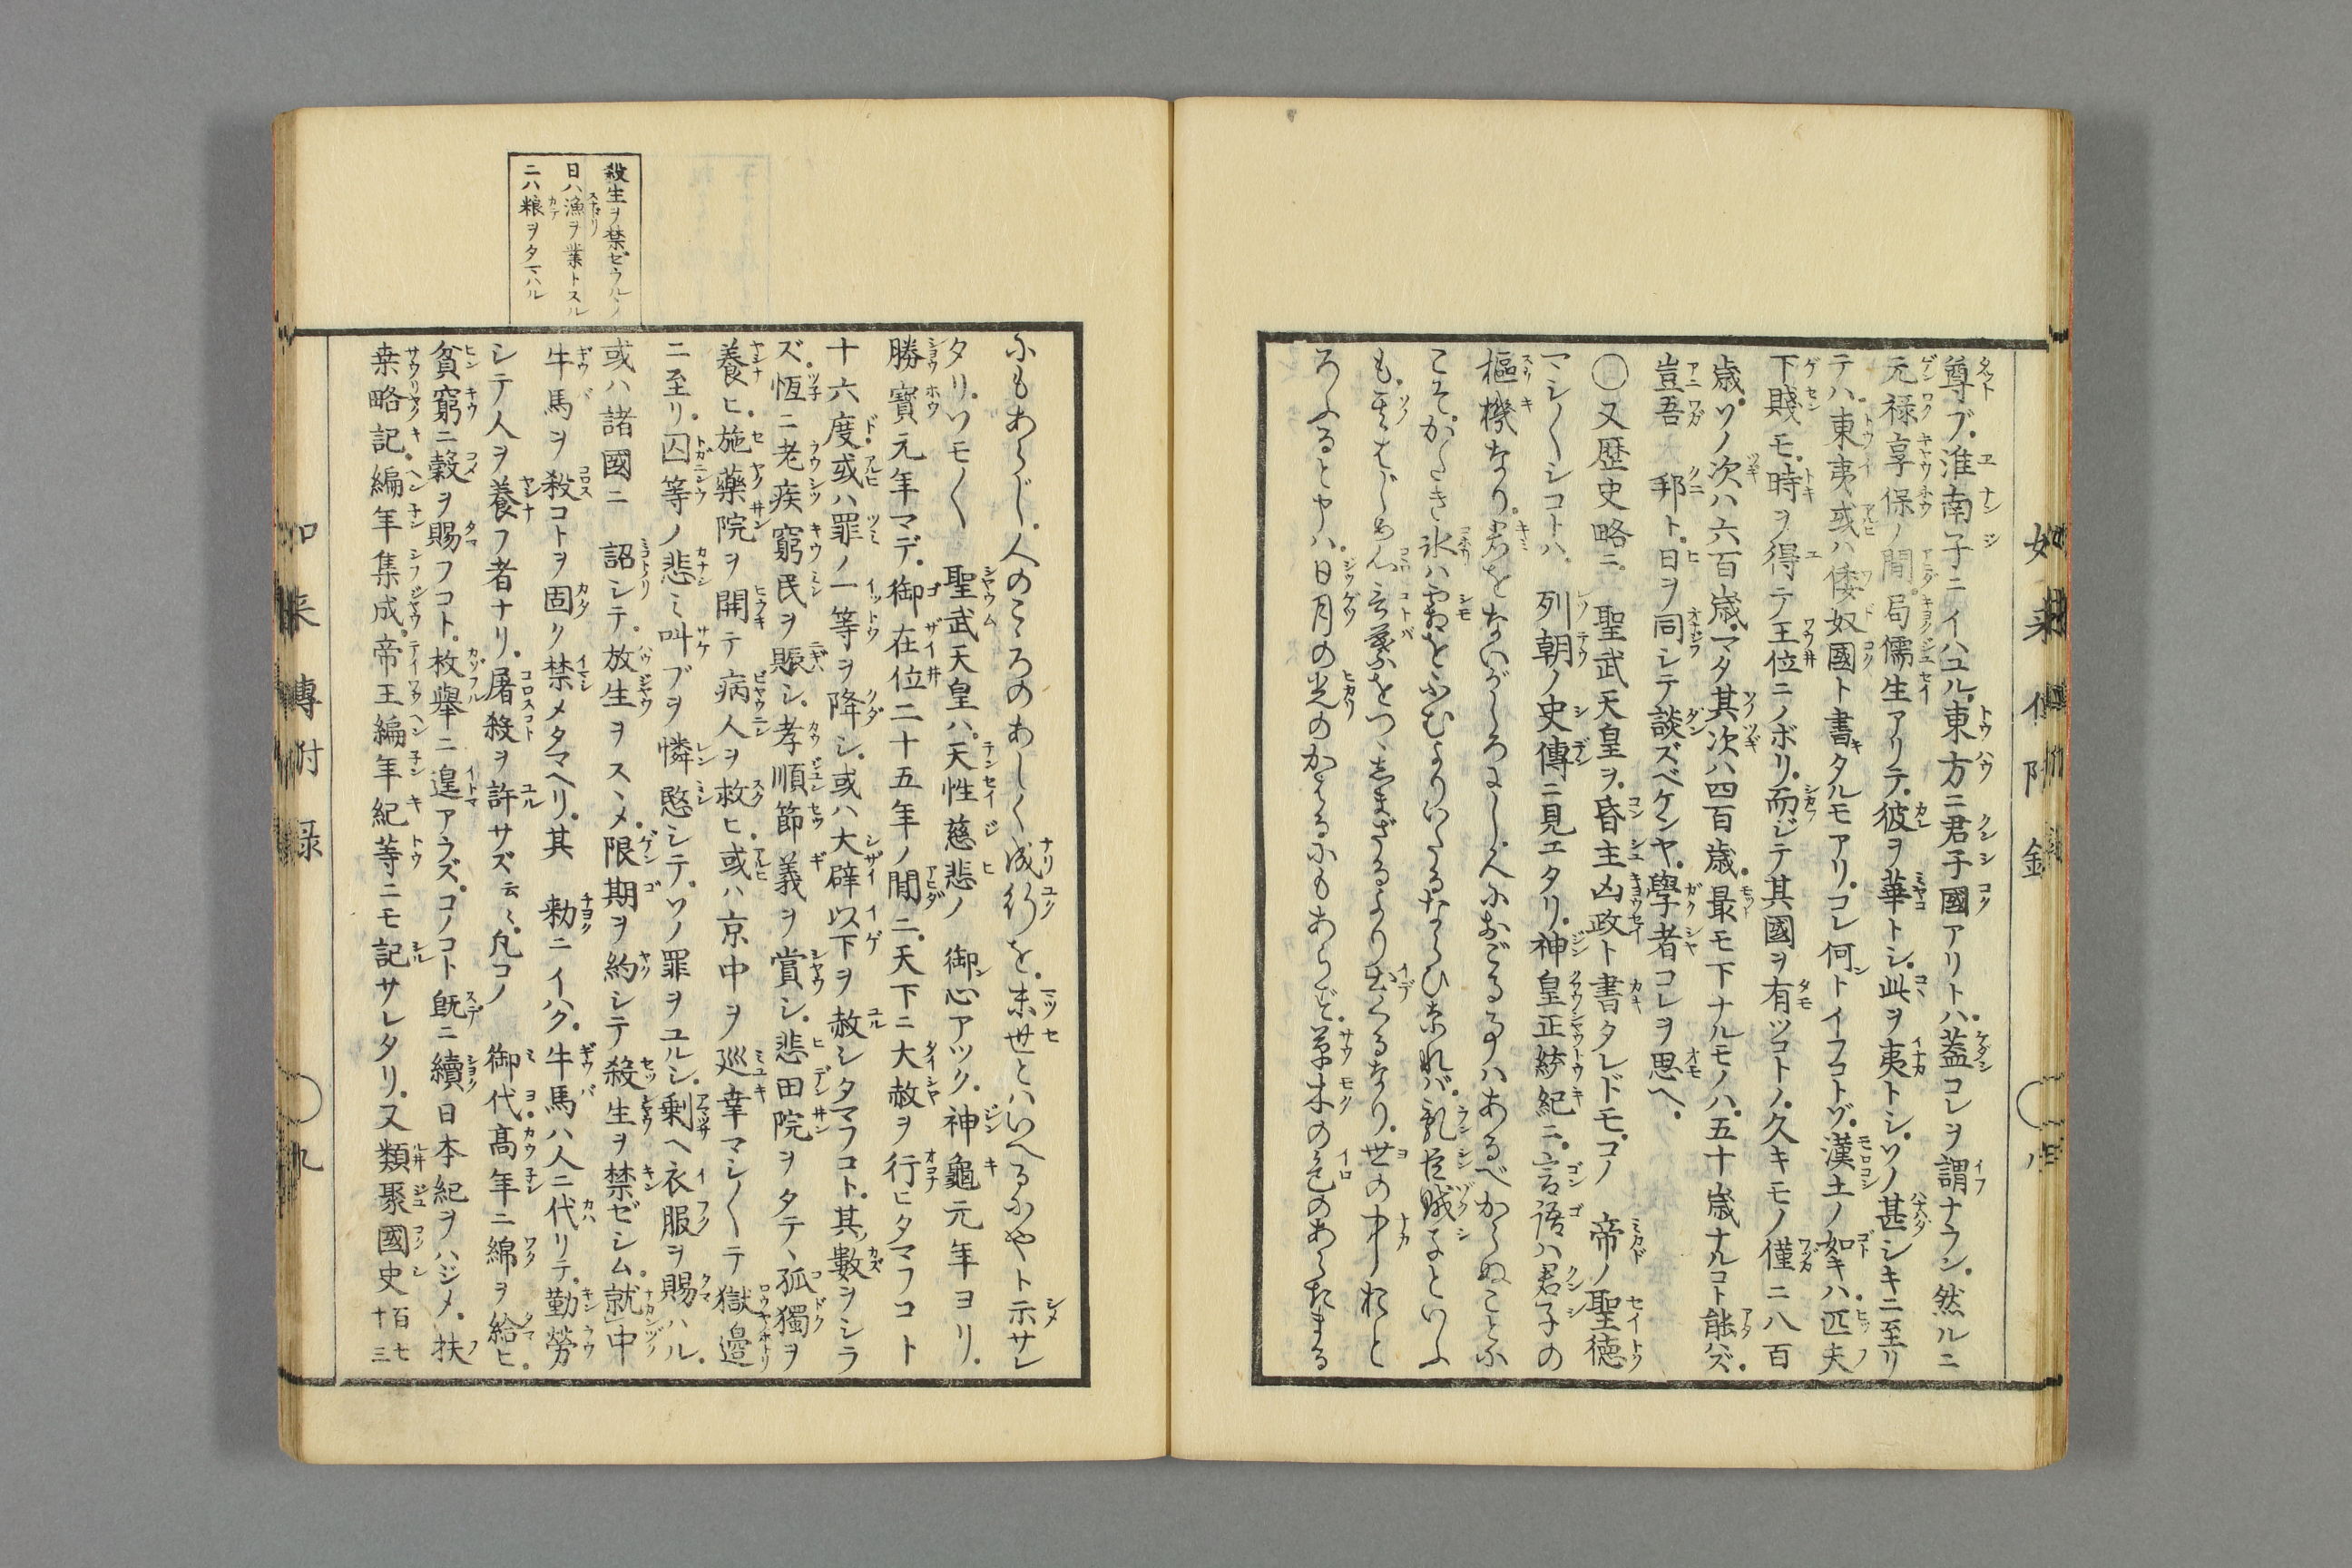 尊ブ。淮南子ニイハユル。東方ニ君子國アリトハ。蓋コレヲ謂ナラン。然ルニ
元禄享保ノ間。局儒生アリテ。彼ヲ華トシ。此ヲ夷トシ。ソノ甚シキニ至リ
テハ。東夷。或ハ倭奴國ト書タルモアリ。コレ何トイフコトゾ。漢土ノ如キハ。匹夫
下賤モ。時ヲ得テ王位ニノボリ。而シテ其國ヲ有ツコトノ。久キモノ僅ニ八百
歳。ソノ次ハ六百歳。マタ其次ハ四百歳。最モ下ナルモノハ。五十歳ナルコト能ハズ。
豈吾 邦ト。日ヲ同シテ談ズベケンヤ。學者コレヲ思ヘ。
〇又歴史略ニ。 聖武天皇ヲ。昏主凶政ト書タレドモ。コノ 帝ノ聖徳
マシ〳〵シコトハ。 列朝ノ史傳ニ見エタリ。神皇正統紀ニ。言語ハ君子の
樞機なり。君をないがしろにし。人におごる事ハあるべからぬことに
こそ。かたき氷ハ霜をふむよりいたるならひなれバ。乱臣賊子といふ
も。其はじめ心言葉をつゝしまざるより出くるなり。世の中のおと
ろふるとやハ。日月の光のかはるにもあらず。草木の色のあらたまる
にもあらじ。人のこゝろのあしく成行を。末世とハいへるにや。ト示サレ
タリ。ソモ〳〵 聖武天皇ハ。天性慈悲ノ 御心アツク。神龜元年ヨリ。
勝寶元年マデ。御在位二十五年ノ間ニ。天下ニ大赦ヲ行ヒタマフコト
十六度。或ハ罪ノ一等ヲ降シ。或ハ大辟以下ヲ赦シタマフコト。其數ヲシラ
ズ。恆ニ老疾窮民ヲ賑シ。孝順節義ヲ賞シ。悲田院ヲタテヽ孤獨ヲ
養ヒ。施藥院ヲ開テ病人ヲ救ヒ。或ハ京中ヲ巡幸マシ〳〵テ獄邉
ニ至リ。囚等ノ悲ミ叫ブヲ憐愍シテ。ソノ罪ヲユルシ。剰ヘ衣服ヲ賜ハル。
或ハ諸國ニ 詔シテ。放生ヲスヽメ。限期ヲ約シテ殺生ヲ禁ゼシム。就中
牛馬ヲ殺コトヲ固ク禁メタマヘリ。其 勅ニイハク。牛馬ハ人ニ代リテ。勤勞
シテ人ヲ養フ者ナリ。屠殺ヲ許サズ云〻。凡コノ 御代。髙年ニ綿ヲ給ヒ。
貧窮ニ穀ヲ賜フコト。枚舉ニ遑アラズ。コノコト既ニ續日本紀ヲハジメ。扶
桒略記。編年集成。帝王編年紀等ニモ記サレタリ。又類聚國史百七十三
殺生ヲ禁ゼラルヽノ
日ハ漁ヲ業トスル
ニハ粮ヲタマハル
如来傳附録 〇九